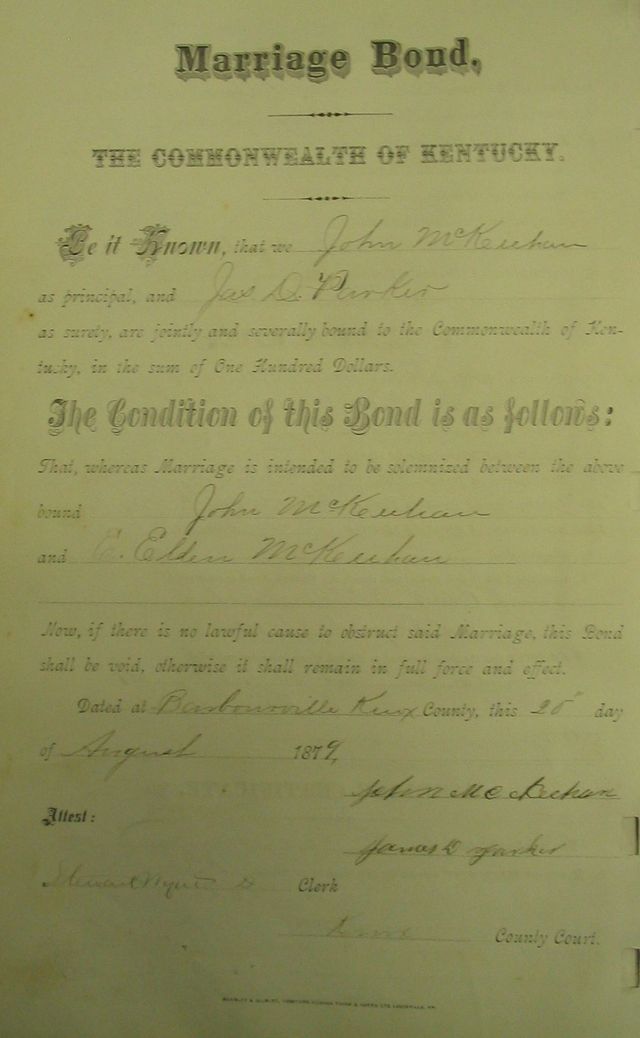 Marriage Bond,
THE COMMONWEALTH OF KENTUCKY.
Be it Known, that we John McKeehan
as principal, and Jas D. Parker
as surety, are jointly and severally bound to the Commonwealth of Ken-
tucky, in the sum of One Hundred Dollars.
The Condition of this Bond is as follows:
That, whereas Marriage is intended to be solemnized between the above
bound John McKeehan
and E. Elden McKeehan
Now, if there is no lawful cause to obstruct said Marriage, this Bond
shall be void, otherwise it shall remain in full force and effect.
Dated at Barbourville Knox County, this day
of August 1879,
John McKeehan
Attest:
James D Parker
Clerk
County Court.